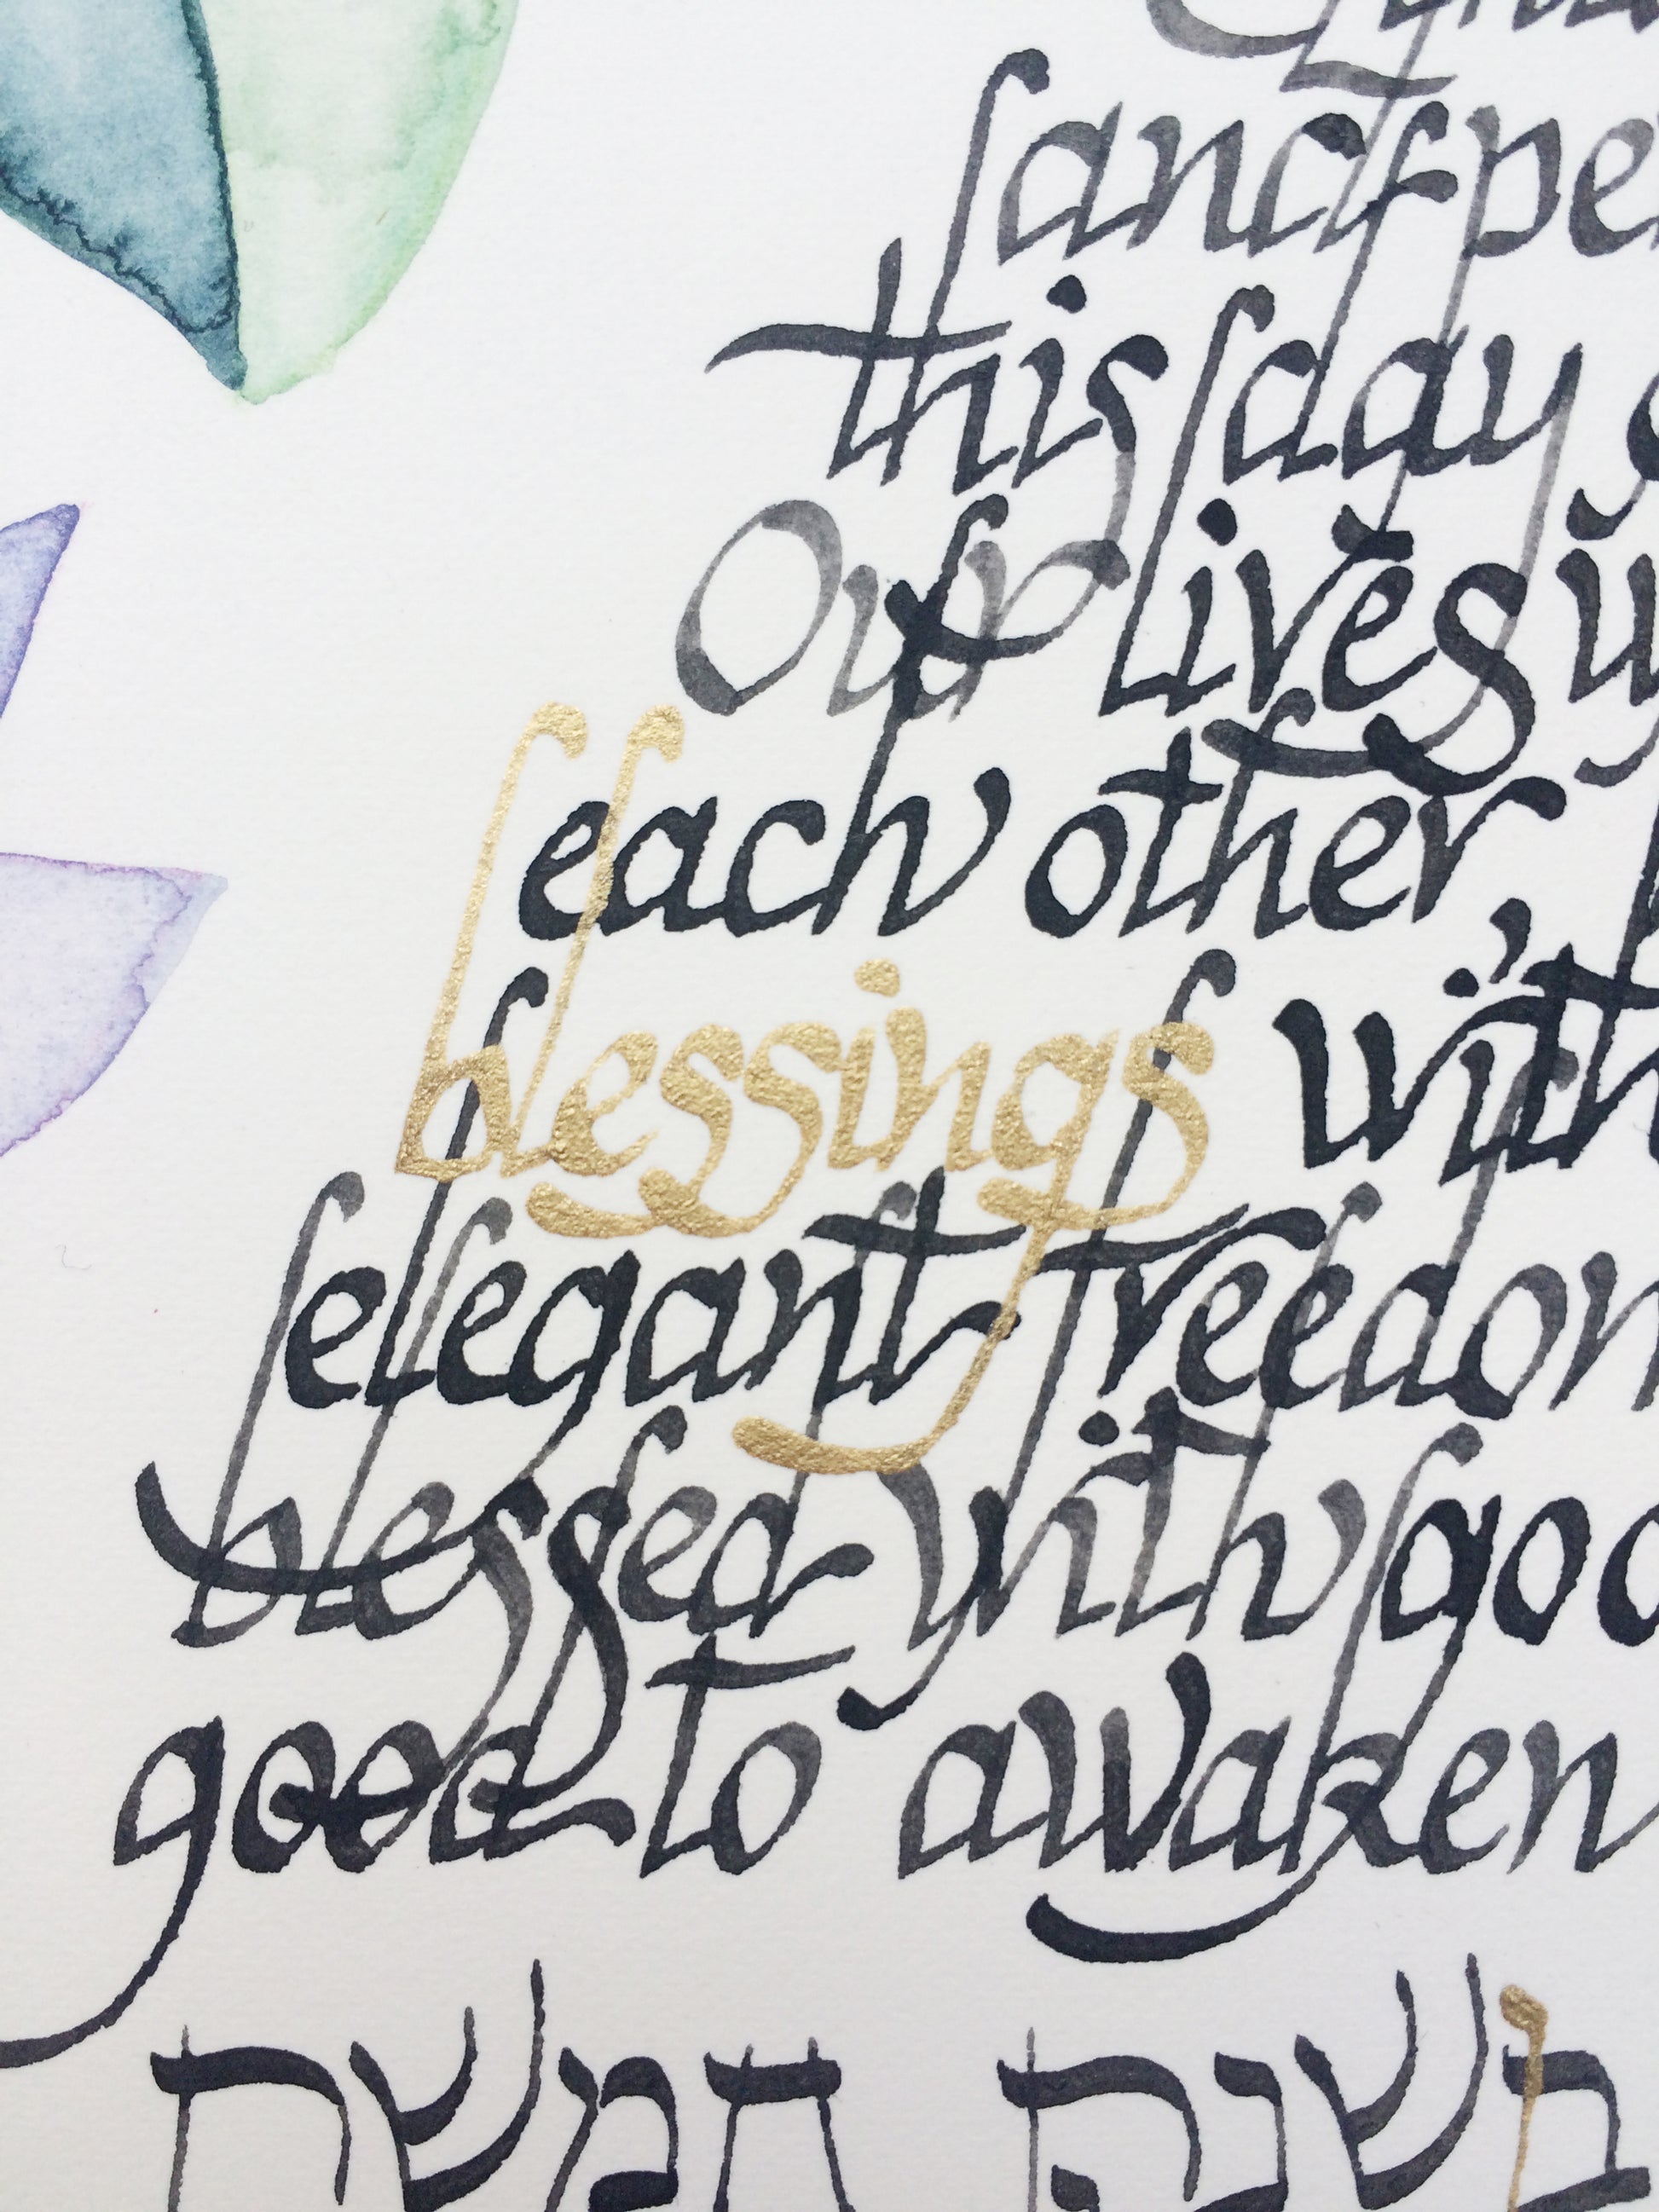 and
this day
Our lives
each other,
blessings with
elegant freedom
blessed with
good to awaken
בשנת חמשת